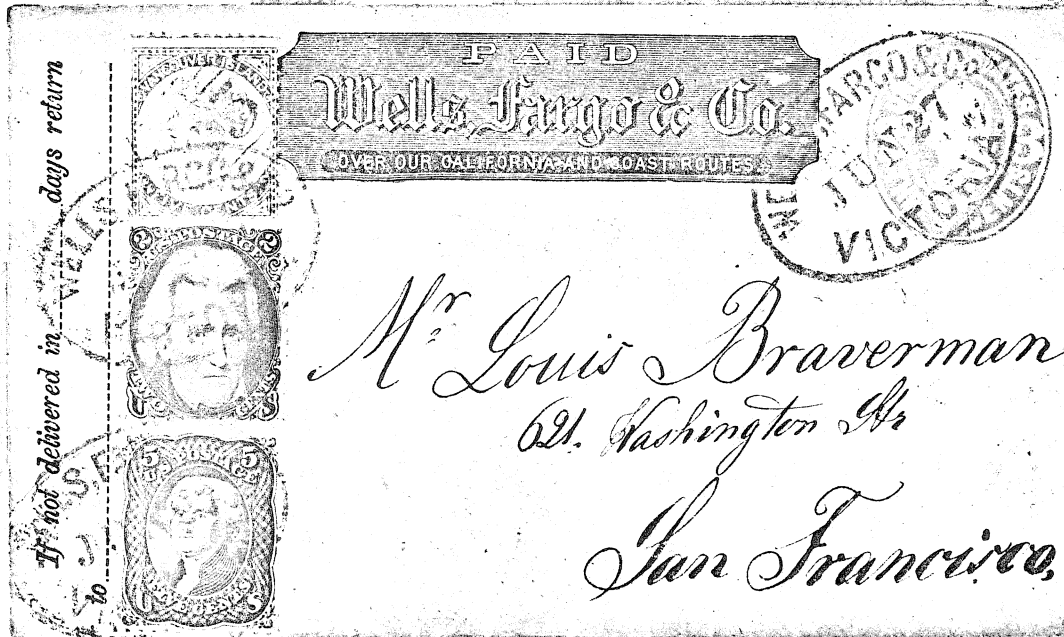 If not delivered in
days return
to
PAID
Wells, Fargo & Co.
OVER OUR CALIFORNIA AND COAST ROUTES.
FARGO & Co.
JUN 27
VICTORIA
WELLS
2 2
U S
5 5
U S
Mr Louis Braverman
621. Washington Str
San Francisco,